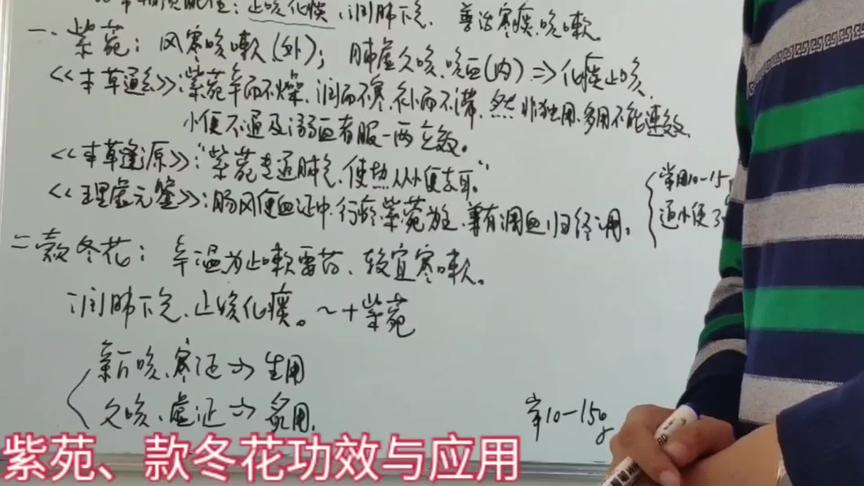 止咳化痰、润肺下气、善治寒痰咳嗽
一、紫菀：风寒咳嗽(外)；肺虚久咳、咳血(内)⇒化痰止咳、
《本草通玄》：紫菀辛而不燥、润而不寒、补而不滞、然非独用、多用不能速效、
小便不通及溺血者服一两立效。
《本草逢原》："紫菀专通肺气、使热从小便去耳。"
《理虚元鉴》：肠风便血证中、行瘀紫菀为主、兼有调血归经之用。
常用10-15g
通小便
二、款冬花：辛温为止嗽要药、较宜寒嗽。
润肺下气、止咳化痰。~+紫菀
新咳、寒证⇒生用
久咳、虚证⇒炙用、
常10-15g
紫菀、款冬花功效与应用